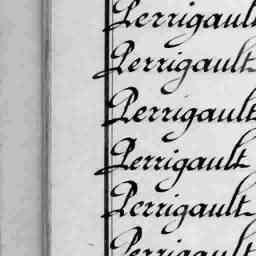 Perrigault
Perrigault
Perrigault
Perrigault
Perrigault
Perrigault